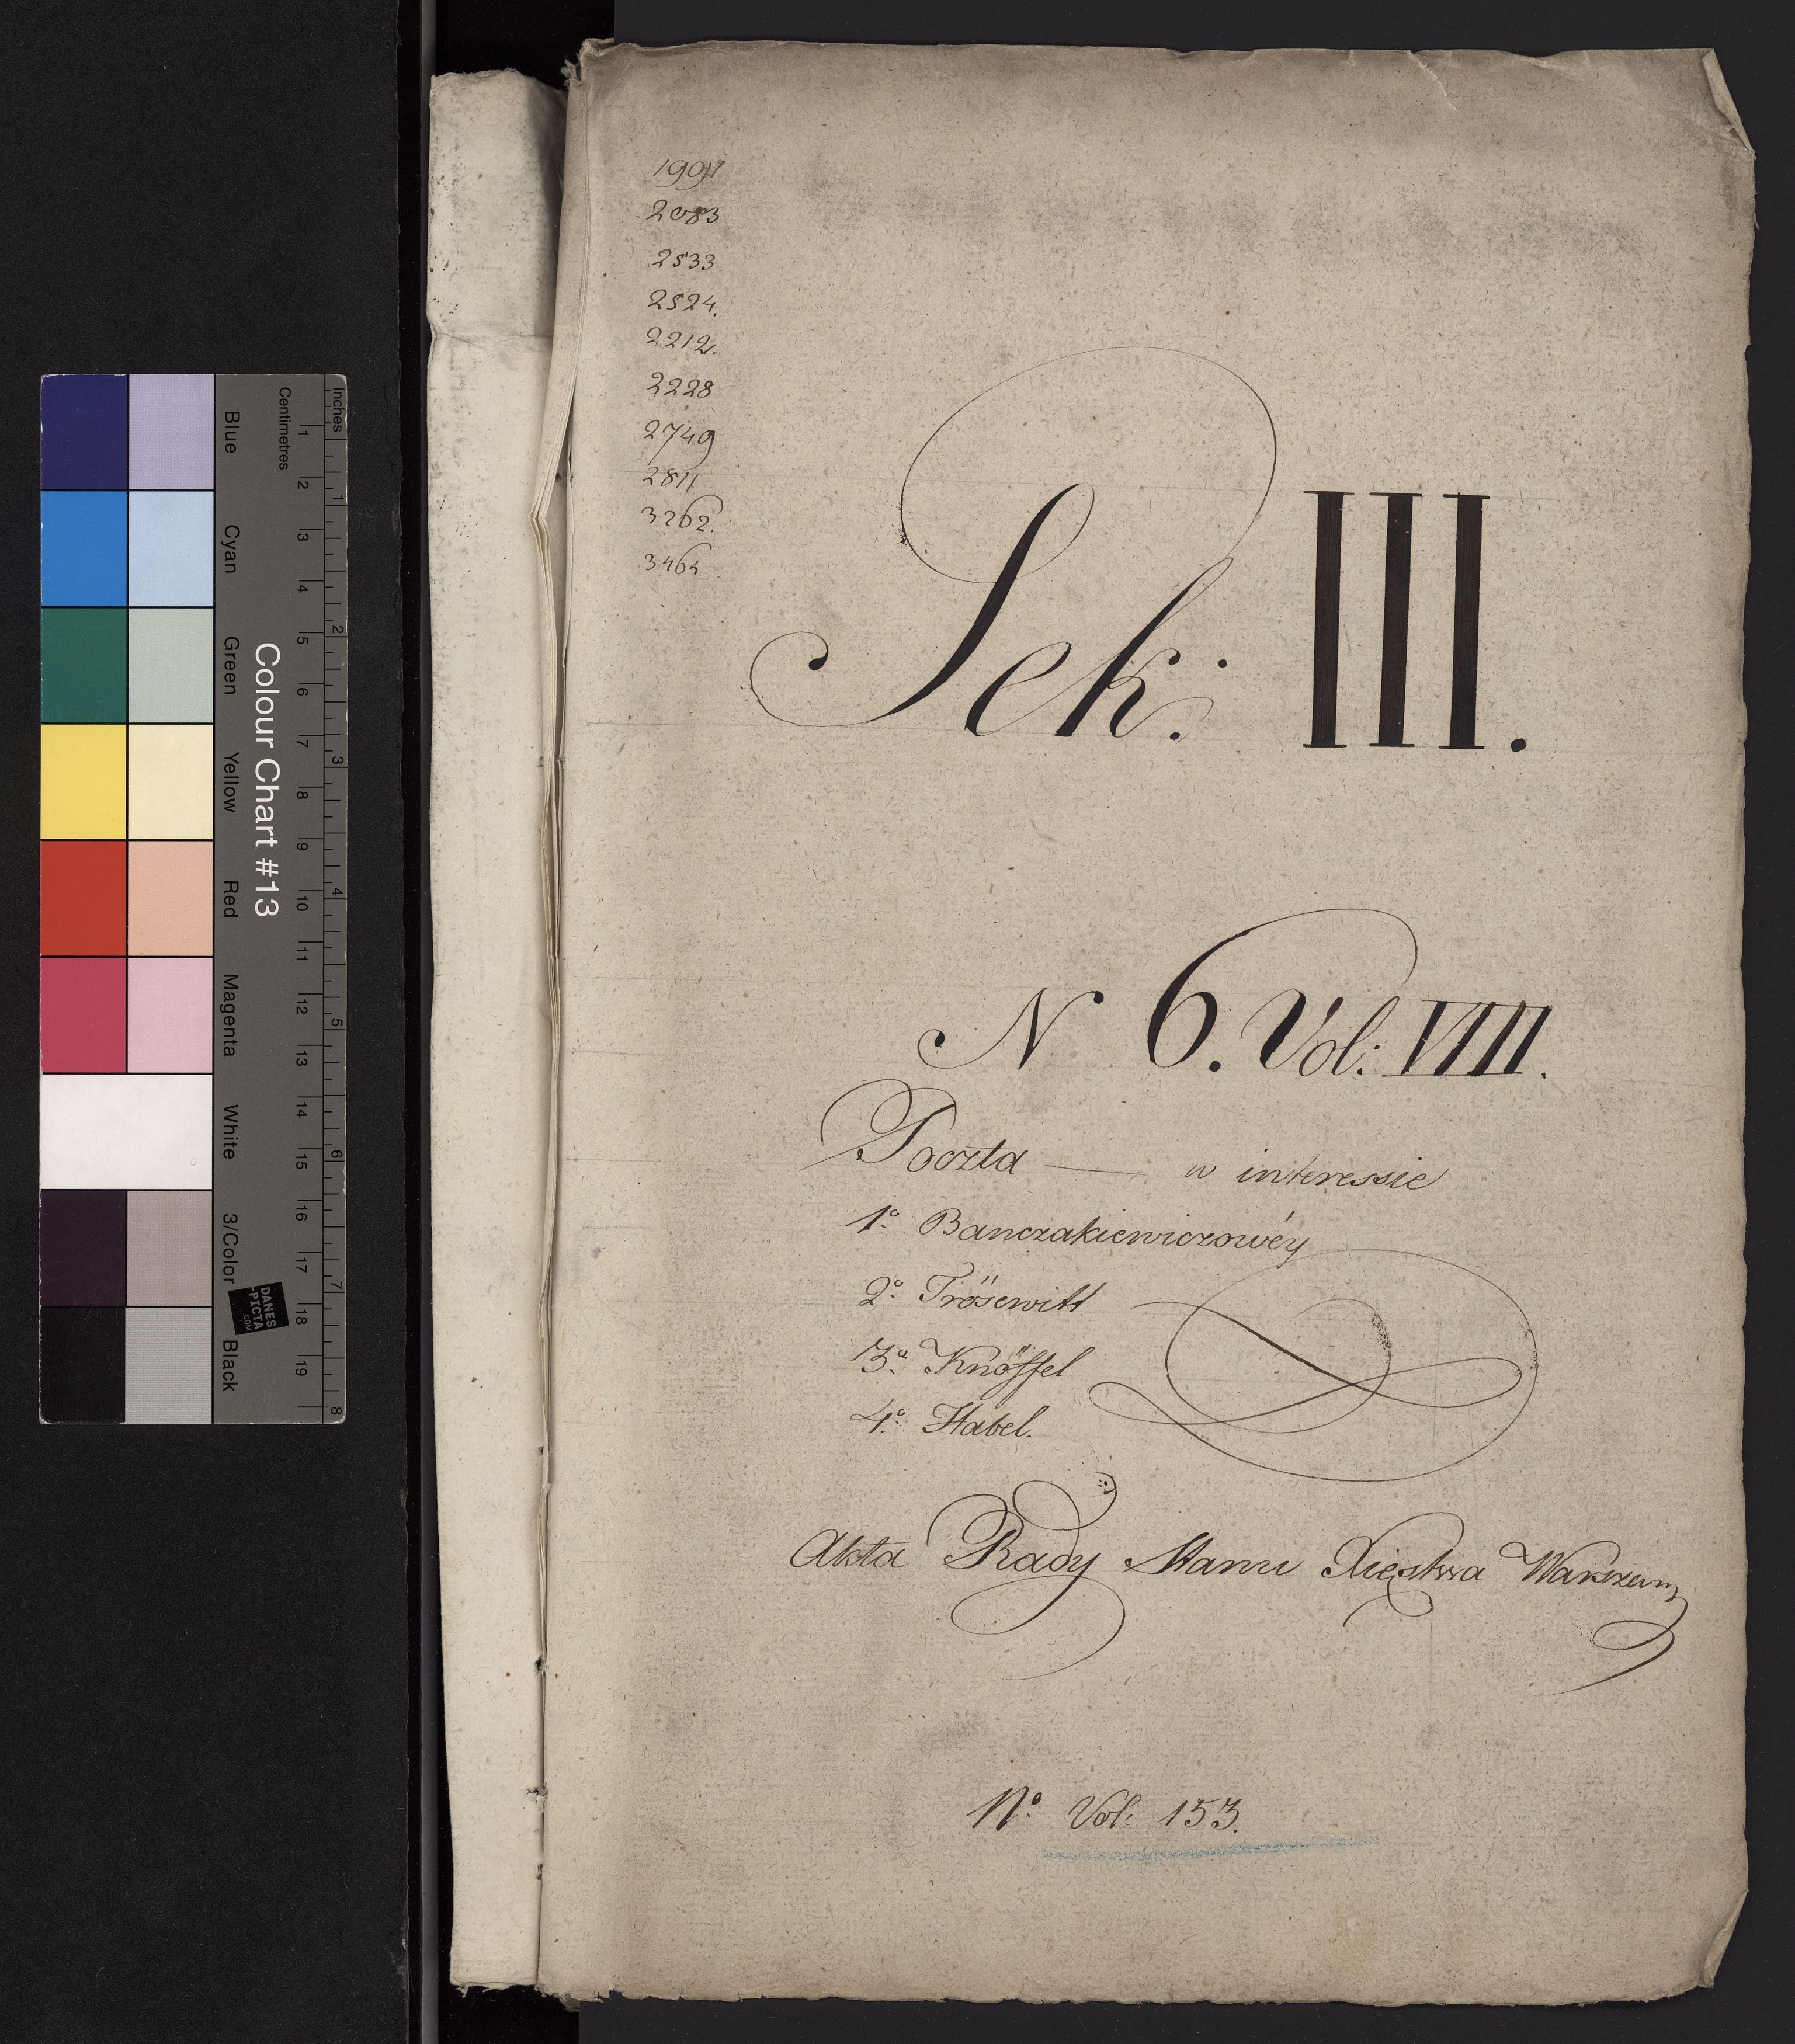 2083
2533
2524.
2212.
2228
2749
2811
3262.
3464
Sek: III.
N 6. Vol: VIIII.
Poczta — w interessie
1º Banczakiewiczowéy
2º Trösewitt
3º Knöffel
4º Habel.
Akta Rady Stanu Xięstwa Warszaw
Nº Vol: 153.
Colour Chart #13
Blue
Cyan
Green
Yellow
Red
Magenta
White
3/Color
Black
Centimetres
1 2 3 4 5 6 7 8 9 10 11 12 13 14 15 16 17 18 19
Inches
1 2 3 4 5 6 7 8
DANES
-PICTA
.COM